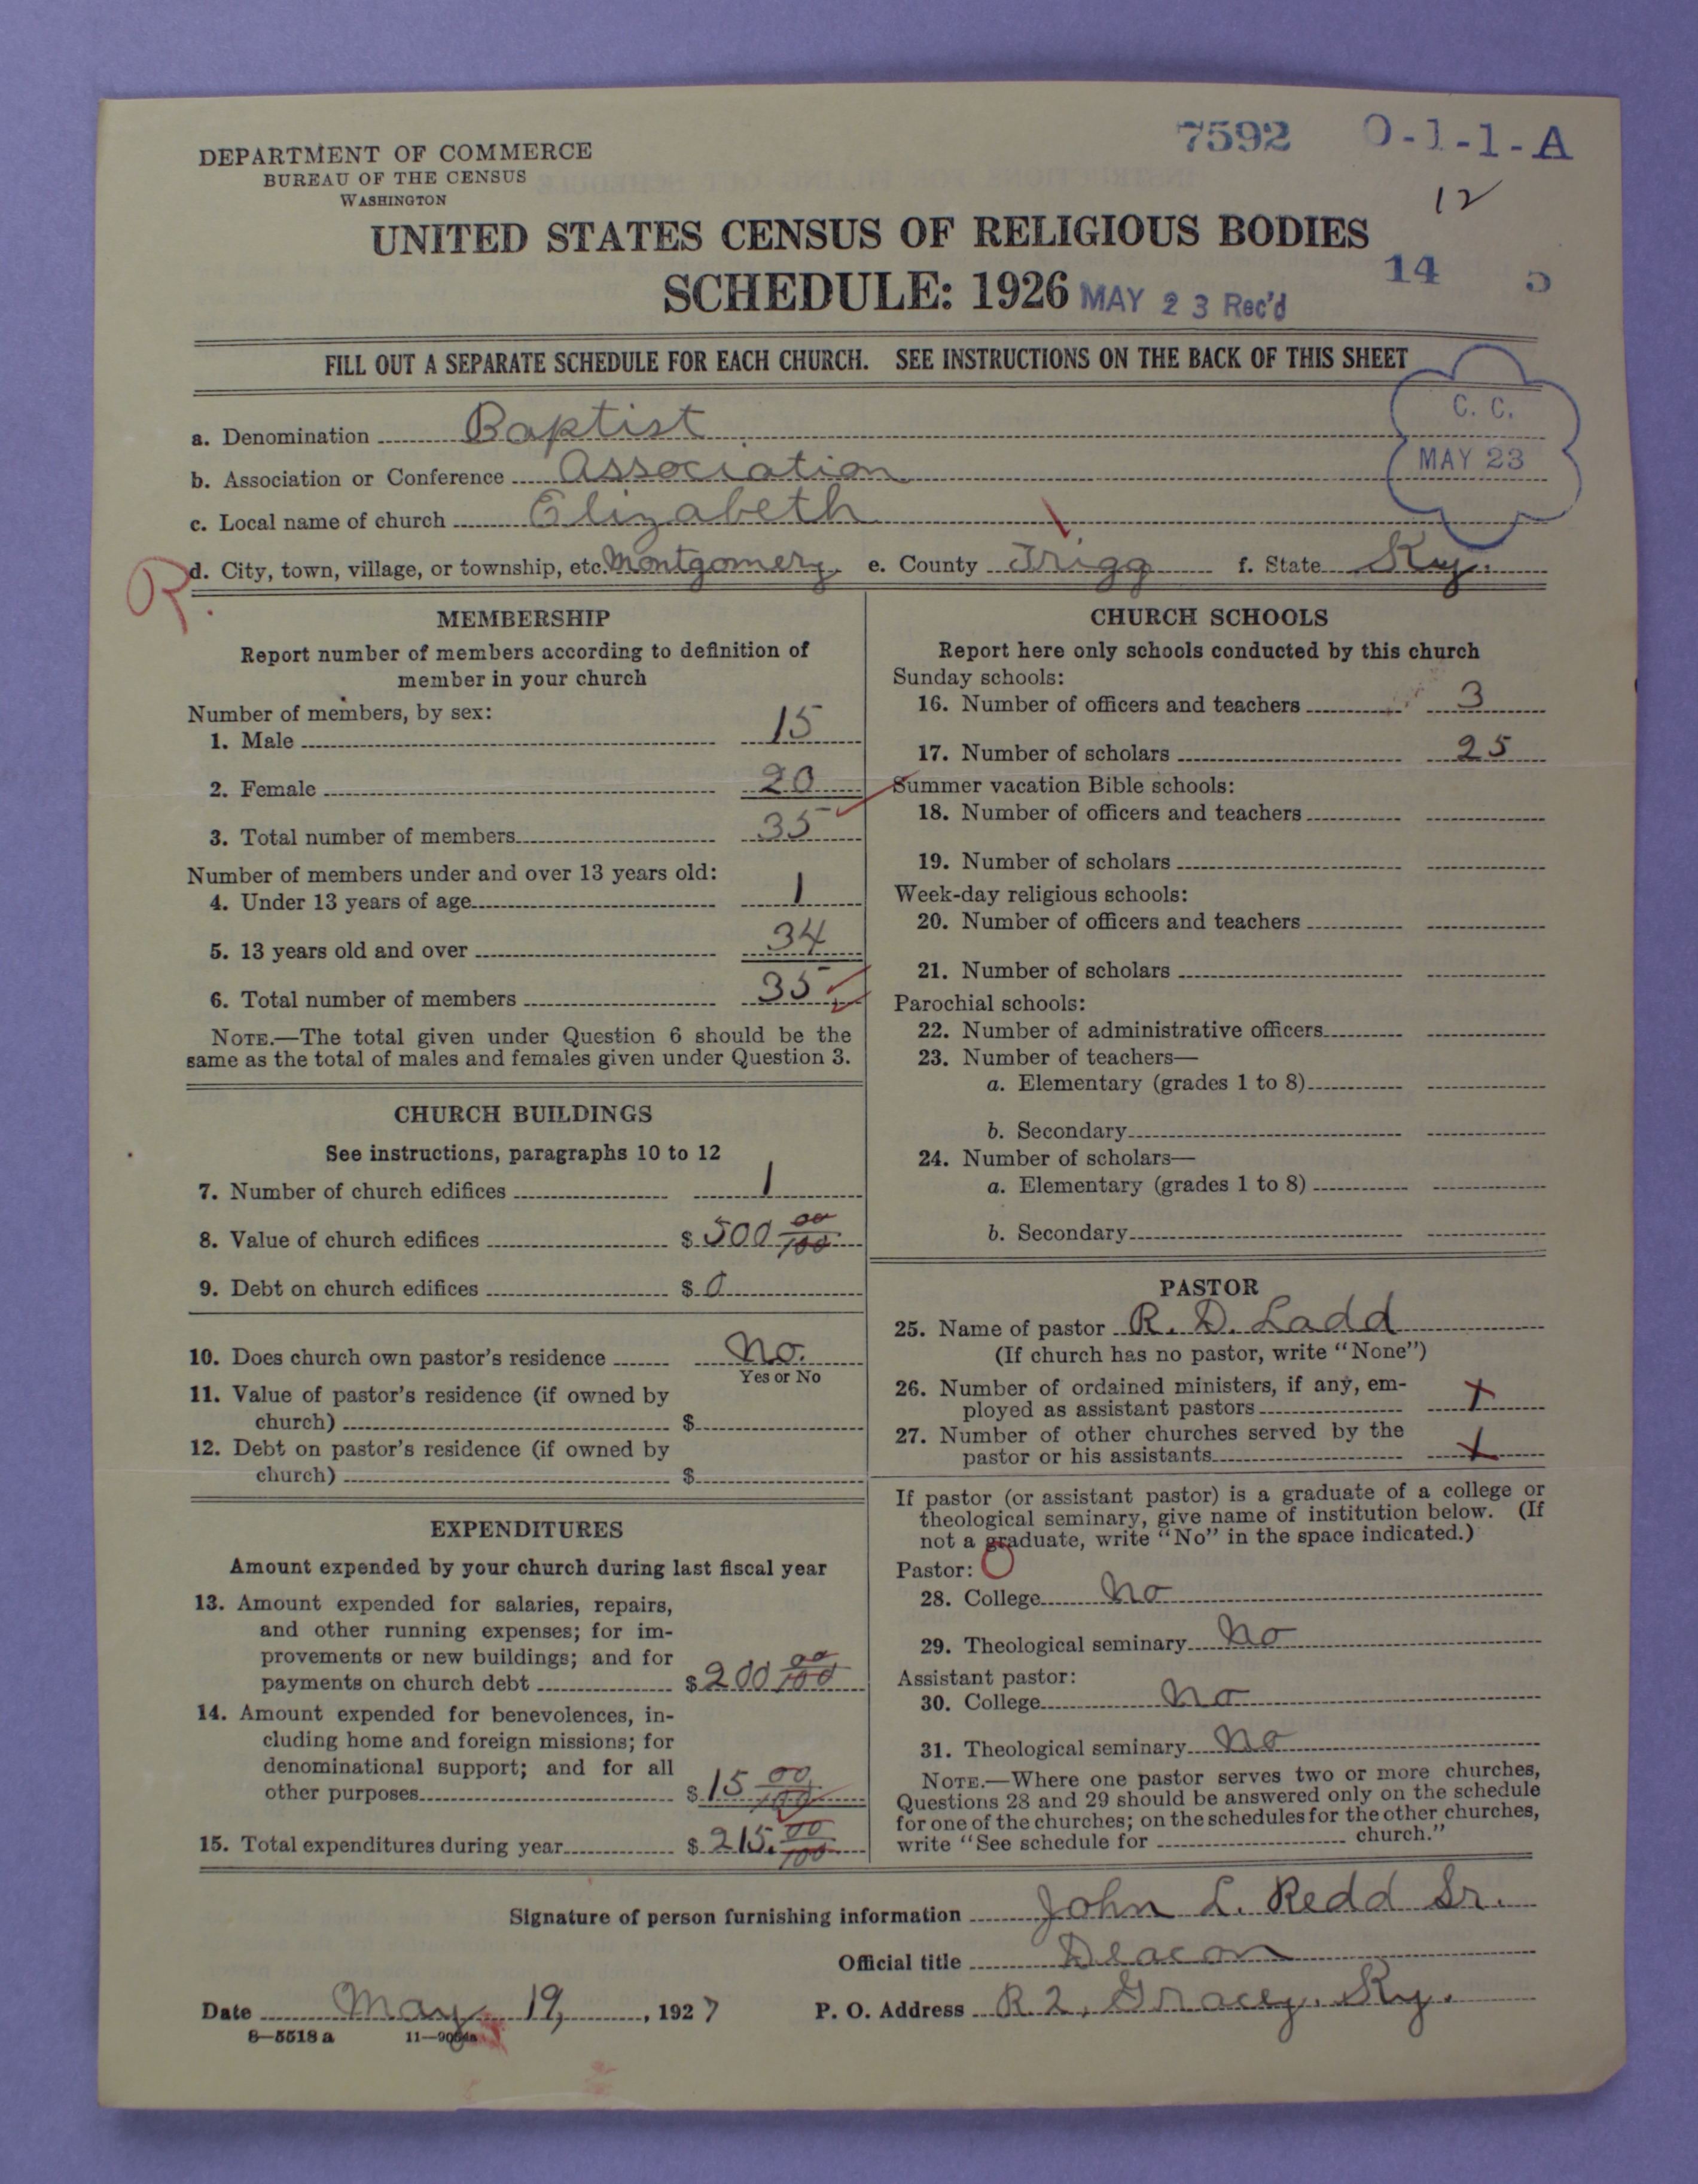 7592 0-1-1-A
DEPARTMENT OF COMMERCE
BUREAU OF THE CENSUS
WASHINGTON
12
UNITED STATES CENSUS OF RELIGIOUS BODIES
14 5
SCHEDULE: 1926 MAY 23 Rec'd
FILL OUT A SEPARATE SCHEDULE FOR EACH CHURCH. SEE INSTRUCTIONS ON THE BACK OF THIS SHEET
C. C.
MAY 23
a. Denomination Baptist
b. Association or Conference Association
c. Local name of church Elizabeth
R. d. City, town, village, or township, etc. Montgomery. e. County Trigg f. State Ky.
MEMBERSHIP
Report number of members according to definition of
member in your church
Number of members, by sex:
1. Male 15
2. Female 20
3. Total number of members 35
Number of members under and over 13 years old:
4. Under 13 years of age 1
5. 13 years old and over 34
6. Total number of members 35
NOTE.—The total given under Question 6 should be the
same as the total of males and females given under Question 3.
CHURCH BUILDINGS
See instructions, paragraphs 10 to 12
7. Number of church edifices 1
8. Value of church edifices $ 500 00/100
9. Debt on church edifices $ 0
10. Does church own pastor's residence no.
Yes or No
11. Value of pastor's residence (if owned by
church) $
12. Debt on pastor's residence (if owned by
church) $
EXPENDITURES
Amount expended by your church during last fiscal year
13. Amount expended for salaries, repairs,
and other running expenses; for im-
provements or new buildings; and for
payments on church debt $ 200 00/100
14. Amount expended for benevolences, in-
cluding home and foreign missions; for
denominational support; and for all
other purposes $ 15 00/100
15. Total expenditures during year $ 215. 00/100
CHURCH SCHOOLS
Report here only schools conducted by this church
Sunday schools:
16. Number of officers and teachers 3
17. Number of scholars 25
Summer vacation Bible schools:
18. Number of officers and teachers
19. Number of scholars
Week-day religious schools:
20. Number of officers and teachers
21. Number of scholars
Parochial schools:
22. Number of administrative officers
23. Number of teachers—
a. Elementary (grades 1 to 8)
b. Secondary
24. Number of scholars—
a. Elementary (grades 1 to 8)
b. Secondary
PASTOR
25. Name of pastor R. D. Ladd
(If church has no pastor, write "None")
26. Number of ordained ministers, if any, em-
ployed as assistant pastors x
27. Number of other churches served by the
pastor or his assistants x
If pastor (or assistant pastor) is a graduate of a college or
theological seminary, give name of institution below. (If
not a graduate, write "No" in the space indicated.)
Pastor:
28. College no
29. Theological seminary no
Assistant pastor:
30. College no
31. Theological seminary no
NOTE.—Where one pastor serves two or more churches,
Questions 28 and 29 should be answered only on the schedule
for one of the churches; on the schedules for the other churches,
write "See schedule for church."
Signature of person furnishing information John L. Redd Sr.
Official title Deacon
Date May 19, 1927 P. O. Address R 2, Gracey, Ky.
8—5518 a